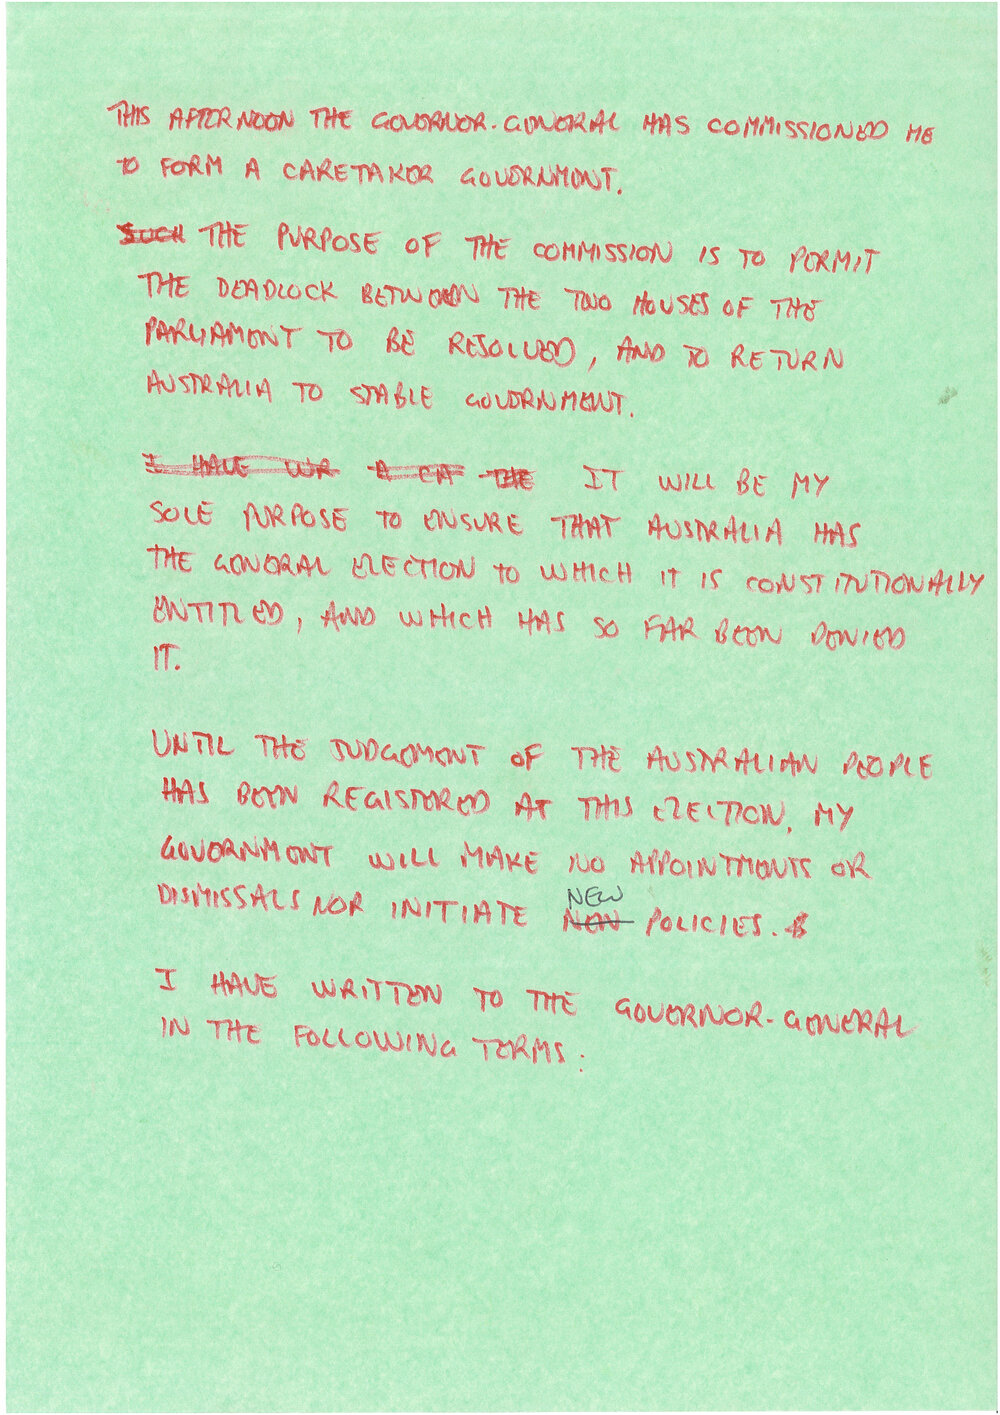 THIS AFTERNOON THE GOVERNOR-GENERAL HAS COMMISSIONED ME
TO FORM A CARETAKER GOVERNMENT.
SUCH THE PURPOSE OF THE COMMISSION IS TO PERMIT
THE DEADLOCK BETWEEN THE TWO HOUSES OF THE
PARLIAMENT TO BE RESOLVED, AND TO RETURN
AUSTRALIA TO STABLE GOVERNMENT.
I HAVE WR A THE IT WILL BE MY
SOLE PURPOSE TO ENSURE THAT AUSTRALIA HAS
THE GENERAL ELECTION TO WHICH IT IS CONSTITUTIONALLY
ENTITLED, AND WHICH HAS SO FAR BEEN DENIED
IT.
UNTIL THE JUDGEMENT OF THE AUSTRALIAN PEOPLE
HAS BEEN REGISTERED AT THIS ELECTION, MY
GOVERNMENT WILL MAKE NO APPOINTMENTS OR
NEW
DISMISSALS NOR INITIATE NEW POLICIES.
I HAVE WRITTEN TO THE GOVERNOR-GENERAL
IN THE FOLLOWING TERMS: